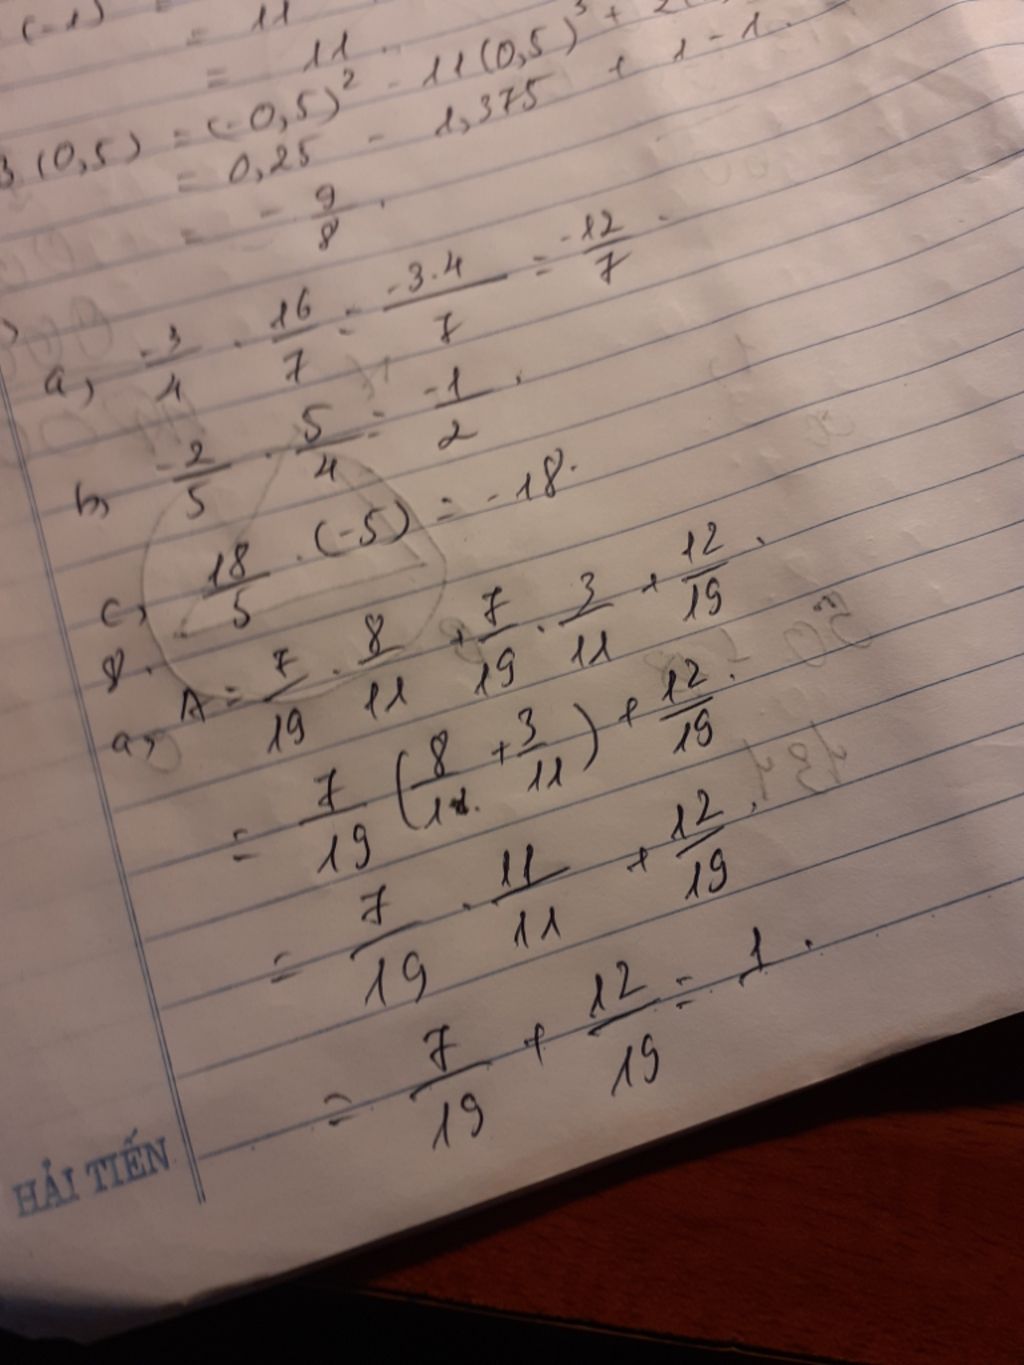 (-1) = 11
= 11.
3(0,5) = (-0,5)² - 11(0,5)³ +
= 0,25 - 1,375 + 1 - 1.
= - 9/8.
a, -3/4 . 16/7 = -3.4/7 = -12/7.
b, -2/5 . 5/4 = -1/2.
c, 18/5 . (-5) = -18.
8.
a, A = 7/19 . 8/11 + 7/19 . 3/11 + 12/19.
= 7/19 (8/11 + 3/11) + 12/19.
= 7/19 . 11/11 + 12/19.
= 7/19 + 12/19 = 1.
HẢI TIẾN